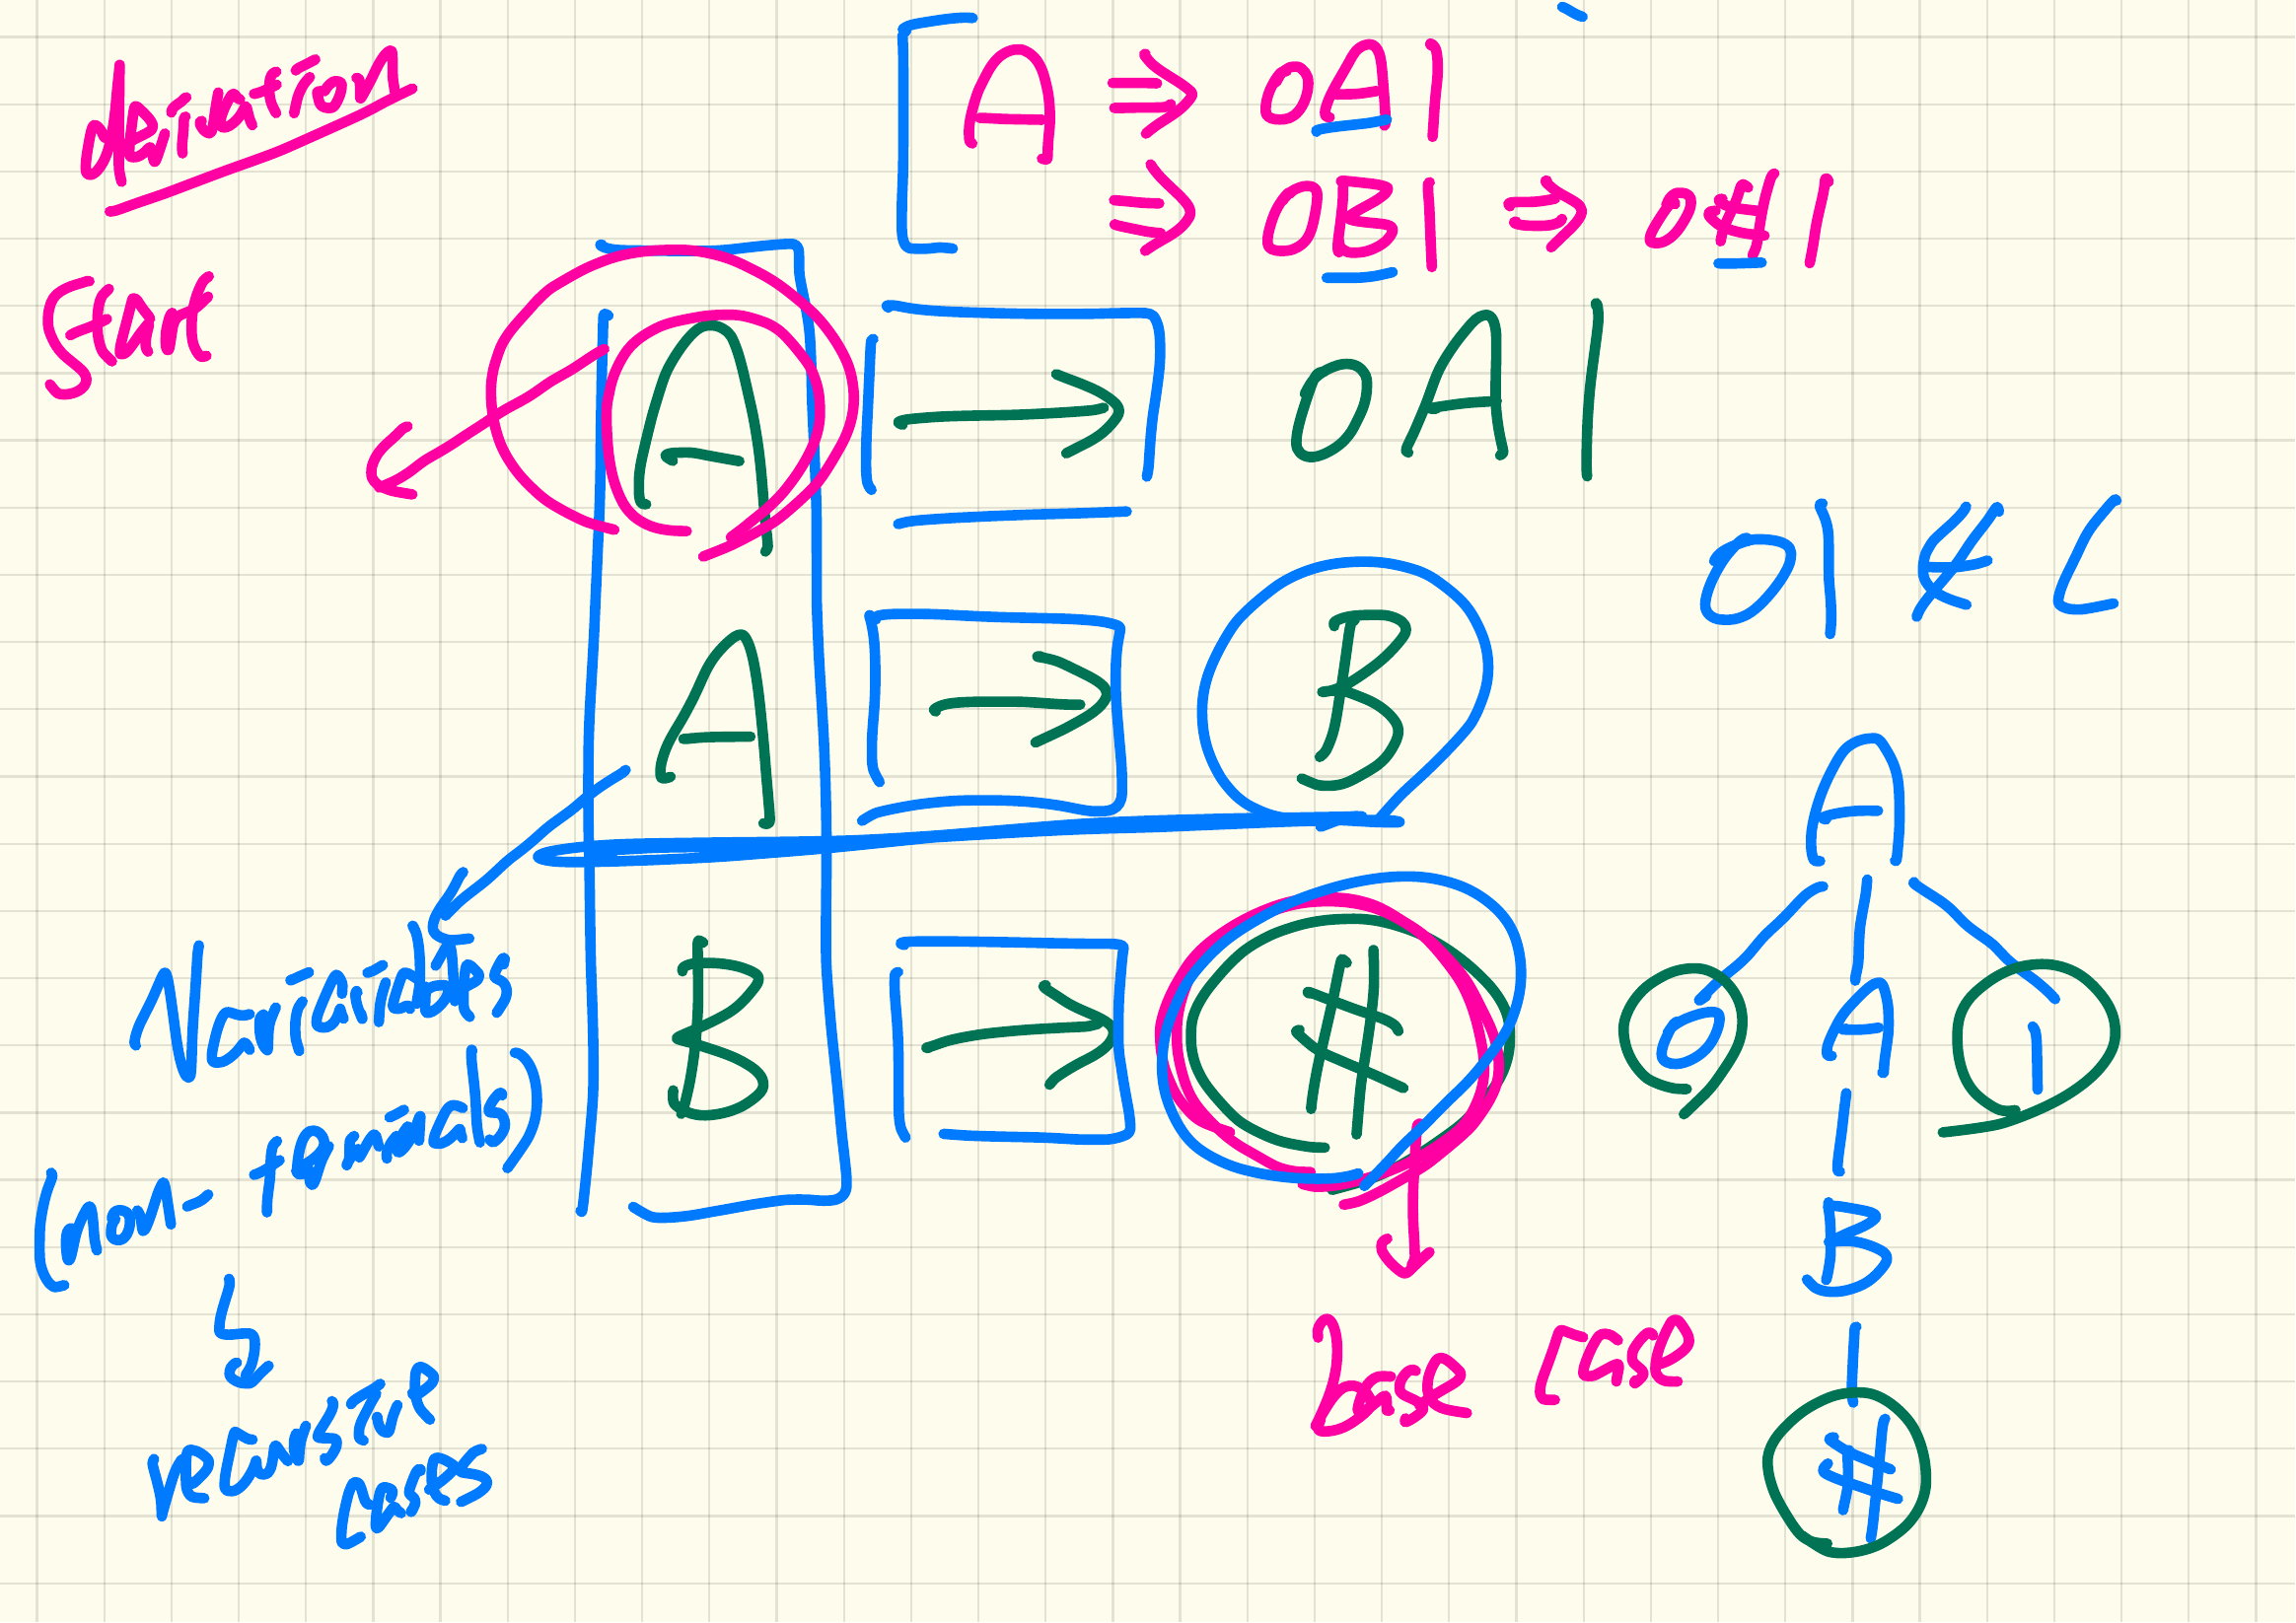 derivation
A ⇒ 0A1
⇒ 0B1 ⇒ 0#1
Start
A → 0A1
01 ∉ L
A → B
B → #
Variables
(non-terminals)
recursive
cases
base case
A
0 A 1
B
#